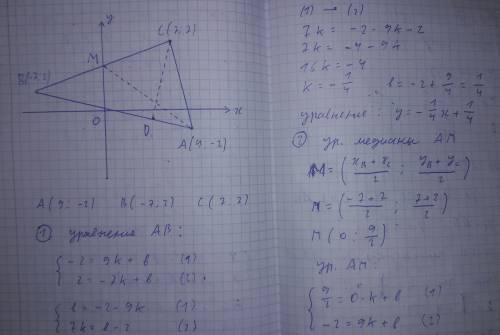 y
C(7;7)
M
B(-7;2)
O
D
x
A(9;-2)
A(9;-2) B(-7;2) C(7;7)
① уравнение AB:
{ -2=9k+b (1)
2=-7k+b (2)
{ b=-2-9k (1)
7k=b-2 (2)
(1) → (2)
7k=-2-9k-2
7k=-4-9k
16k=-4
k=-1/4 b=-2+9/4=1/4
уравнение: y=-1/4x+1/4
② ур. медианы AM
M=(xB+xC/2; yB+yC/2)
M=(-7+7/2; 2+7/2)
M(0; 9/2)
ур. AM:
{ 9/2=0·k+b (1)
-2=9k+b (2)